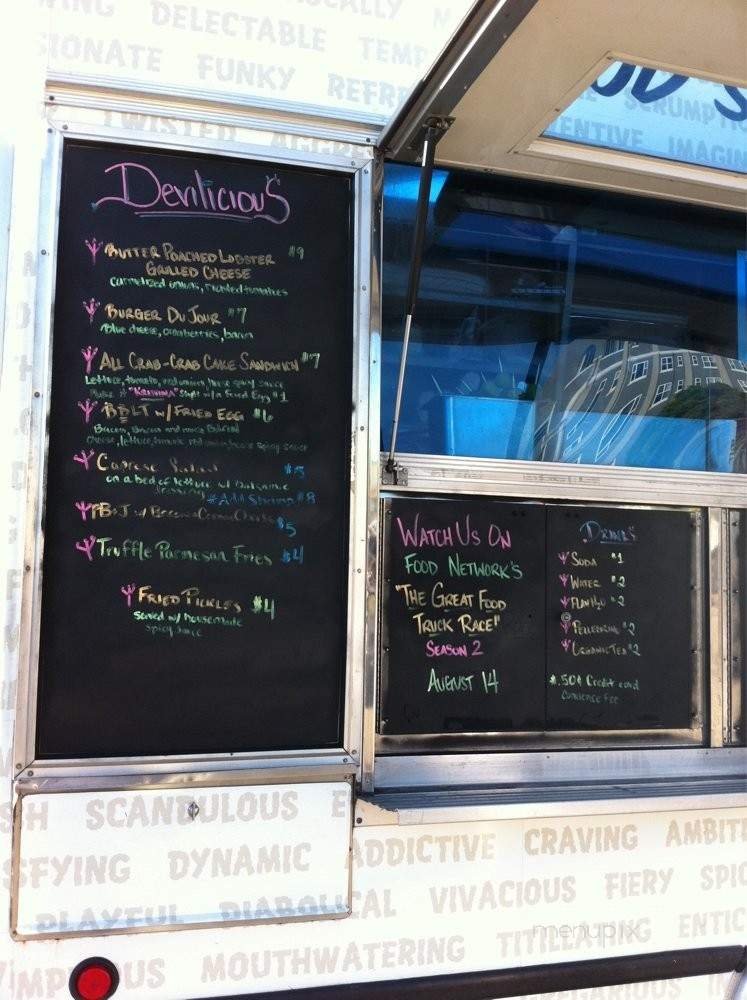 DELECTABLE
FUNKY
TWISTED
IMAGIN
Devilicious
BUTTER POACHED LOBSTER $9
GRILLED CHEESE
caramelized onions, roasted tomatoes
BURGER DU JOUR $7
Blue cheese, cranberries, bacon
ALL CRAB-CRAB CAKE SANDWICH $7
Lettuce, tomato, spicy sauce
Make it "KRISTINA" style w/a Fried Egg $1
BBLT w/ FRIED EGG $6
Bacon, Bacon and more BACON
cheese, lettuce, spicy sauce
Caprese Salad $5
on a bed of lettuce w/ balsamic
dressing *Add Shrimp $8
PB&J w/ $5
Truffle Parmesan Fries $4
FRIED PICKLES $4
served w/ housemade
spicy sauce
WATCH US ON
FOOD NETWORK'S
"THE GREAT FOOD
TRUCK RACE"
SEASON 2
AUGUST 14
DRINKS
SODA $1
WATER $2
PELLEGRINO $2
ORGANIC TEA $2
*.50¢ Credit card
Convience Fee
SCANDULOUS
SFYING DYNAMIC ADDICTIVE CRAVING AMBIT
PLAYFUL DIABOLICAL VIVACIOUS FIERY SPIC
MOUTHWATERING TITILLATING ENTIC
menupix